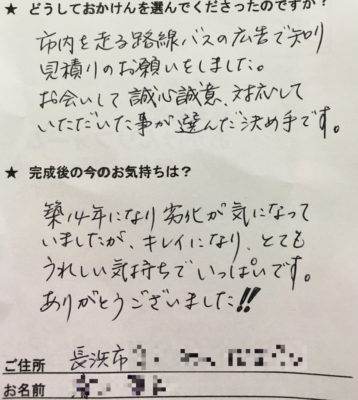 ★ どうしておかけんを選んでくださったのですか？
市内を走る路線バスの広告で知り
見積りのお願いをしました。
お会いして誠心誠意、対応して
いただいた事が選んだ決め手です。
★ 完成後の今のお気持ちは？
築14年になり劣化が気になって
いましたが、キレイになり、とても
うれしい気持ちでいっぱいです。
ありがとうございました!!
ご住所 長浜市
お名前